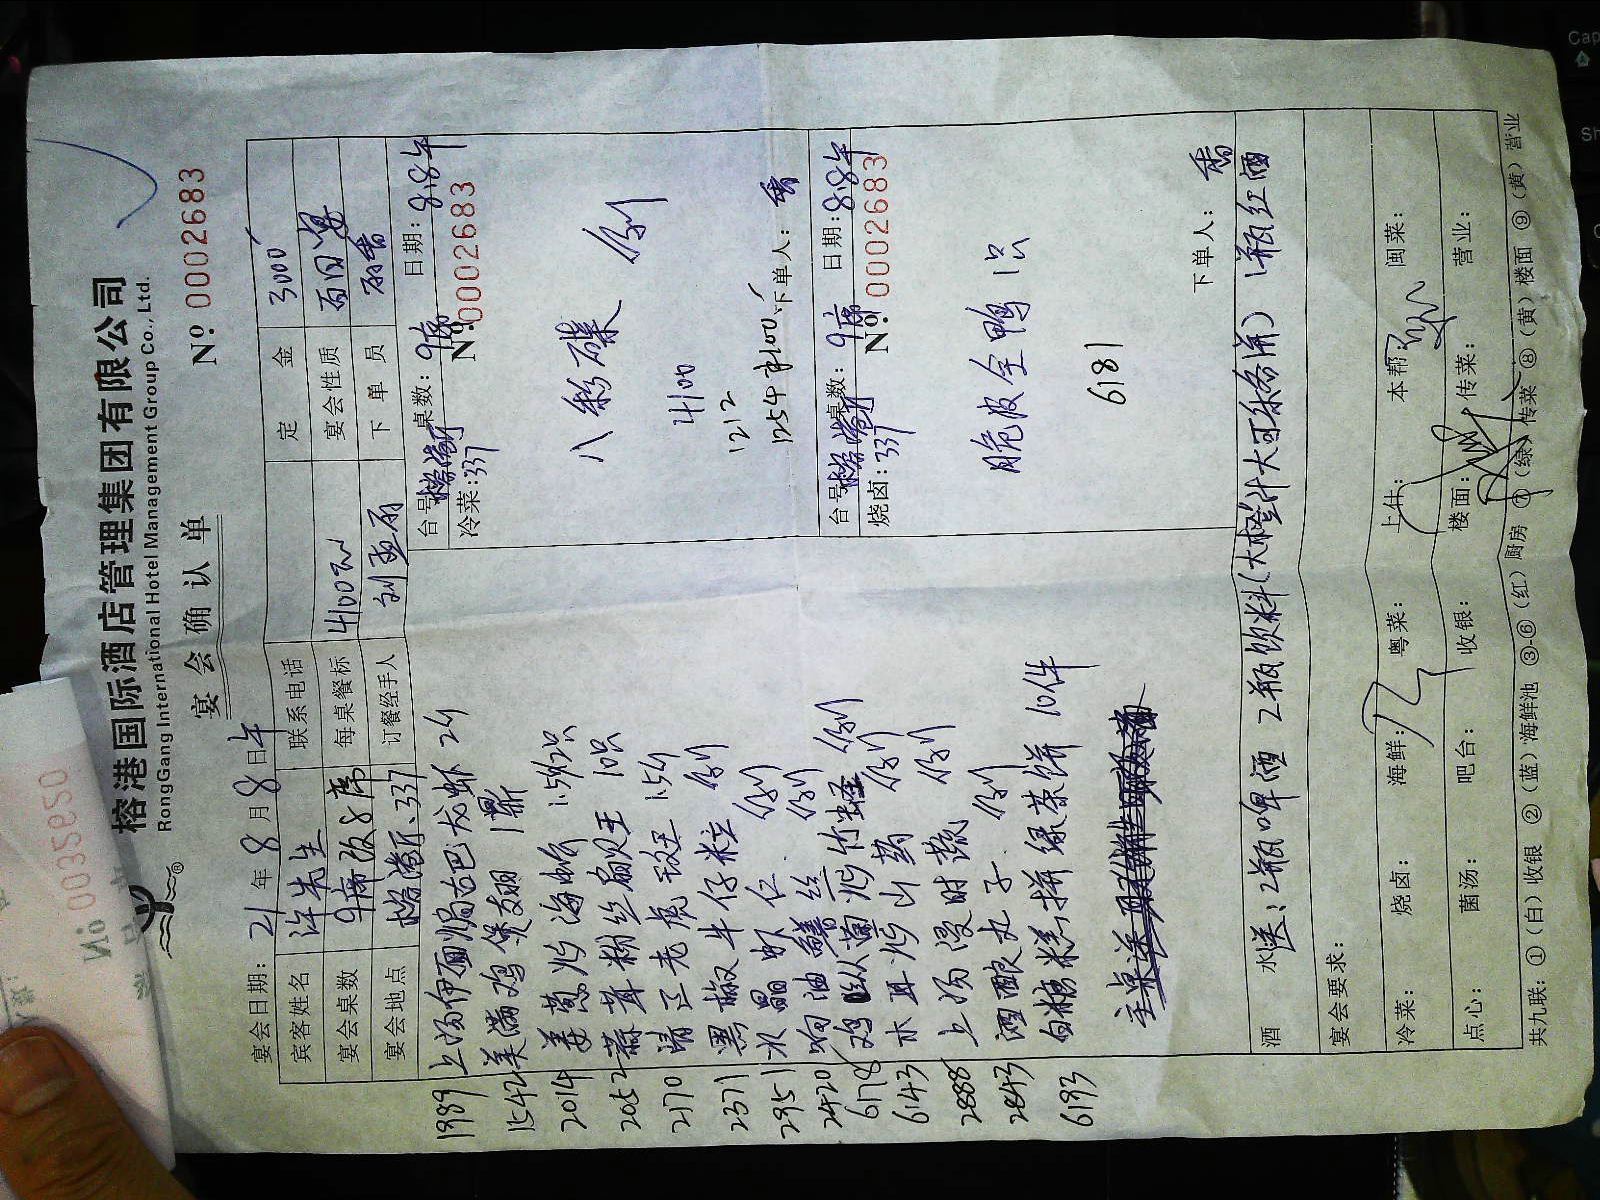 榕港国际酒店管理集团有限公司
RongGang International Hotel Management Group Co., Ltd.
宴会确认单
Nº 0002683
Nº 0035950
宴会日期: 21 年 8 月 8 日 午
宾客姓名 许先生 联系电话 定金 3000
宴会桌数 9席 每桌餐标 4100 宴会性质 百日宴
宴会地点 榕港厅、337 订餐经手人 下单员
1989 上汤伊面焗古巴龙虾 2斤
1542 美满鸡煲翅 1鼎
2014 姜葱炒海蟹
2052 蒜茸粉丝扇贝王 10只
2170 清正老虎斑 1.5斤
2371 黑椒牛仔粒 例
2951 水晶虾仁 例
2420 响油鳝丝 例
6178 鸡 炒竹蛏 例
6143 木耳炒山药 例
2888 上汤浸时蔬 例
2843 酒酿丸子 例
6193 白糖糕拼绿茶饼 10件
台号 榕港厅 桌数: 9席 日期: 8.8午
冷菜: 337 Nº 0002683
八彩碟 例
4100
1212
1254
下单人: 香
台号 榕港厅 桌数: 9席 日期: 8.8午
烧卤: 337 Nº 0002683
脆皮全鸭 1只
6181
下单人: 香
酒水 送: 2瓶啤酒 2瓶饮料(大橙汁大可乐各1瓶) 1瓶红酒
宴会要求:
冷菜: 烧卤: 海鲜: 粤菜: 上什: 本帮: 闽菜:
点心: 菌汤: 吧台: 收银: 楼面: 传菜: 营业:
共九联: ①(白)收银 ②(蓝)海鲜池 ③-⑥(红)厨房 ⑦(绿)传菜 ⑧(黄)楼面 ⑨(黄)营业